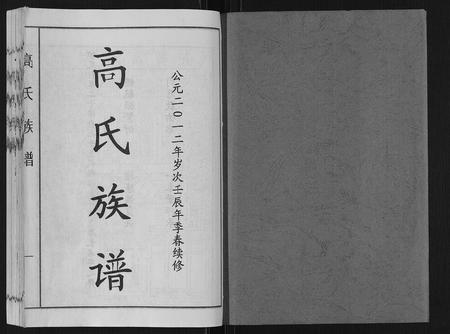 公元二〇一二年岁次壬辰年季春续修
高氏族谱
高氏族谱
一